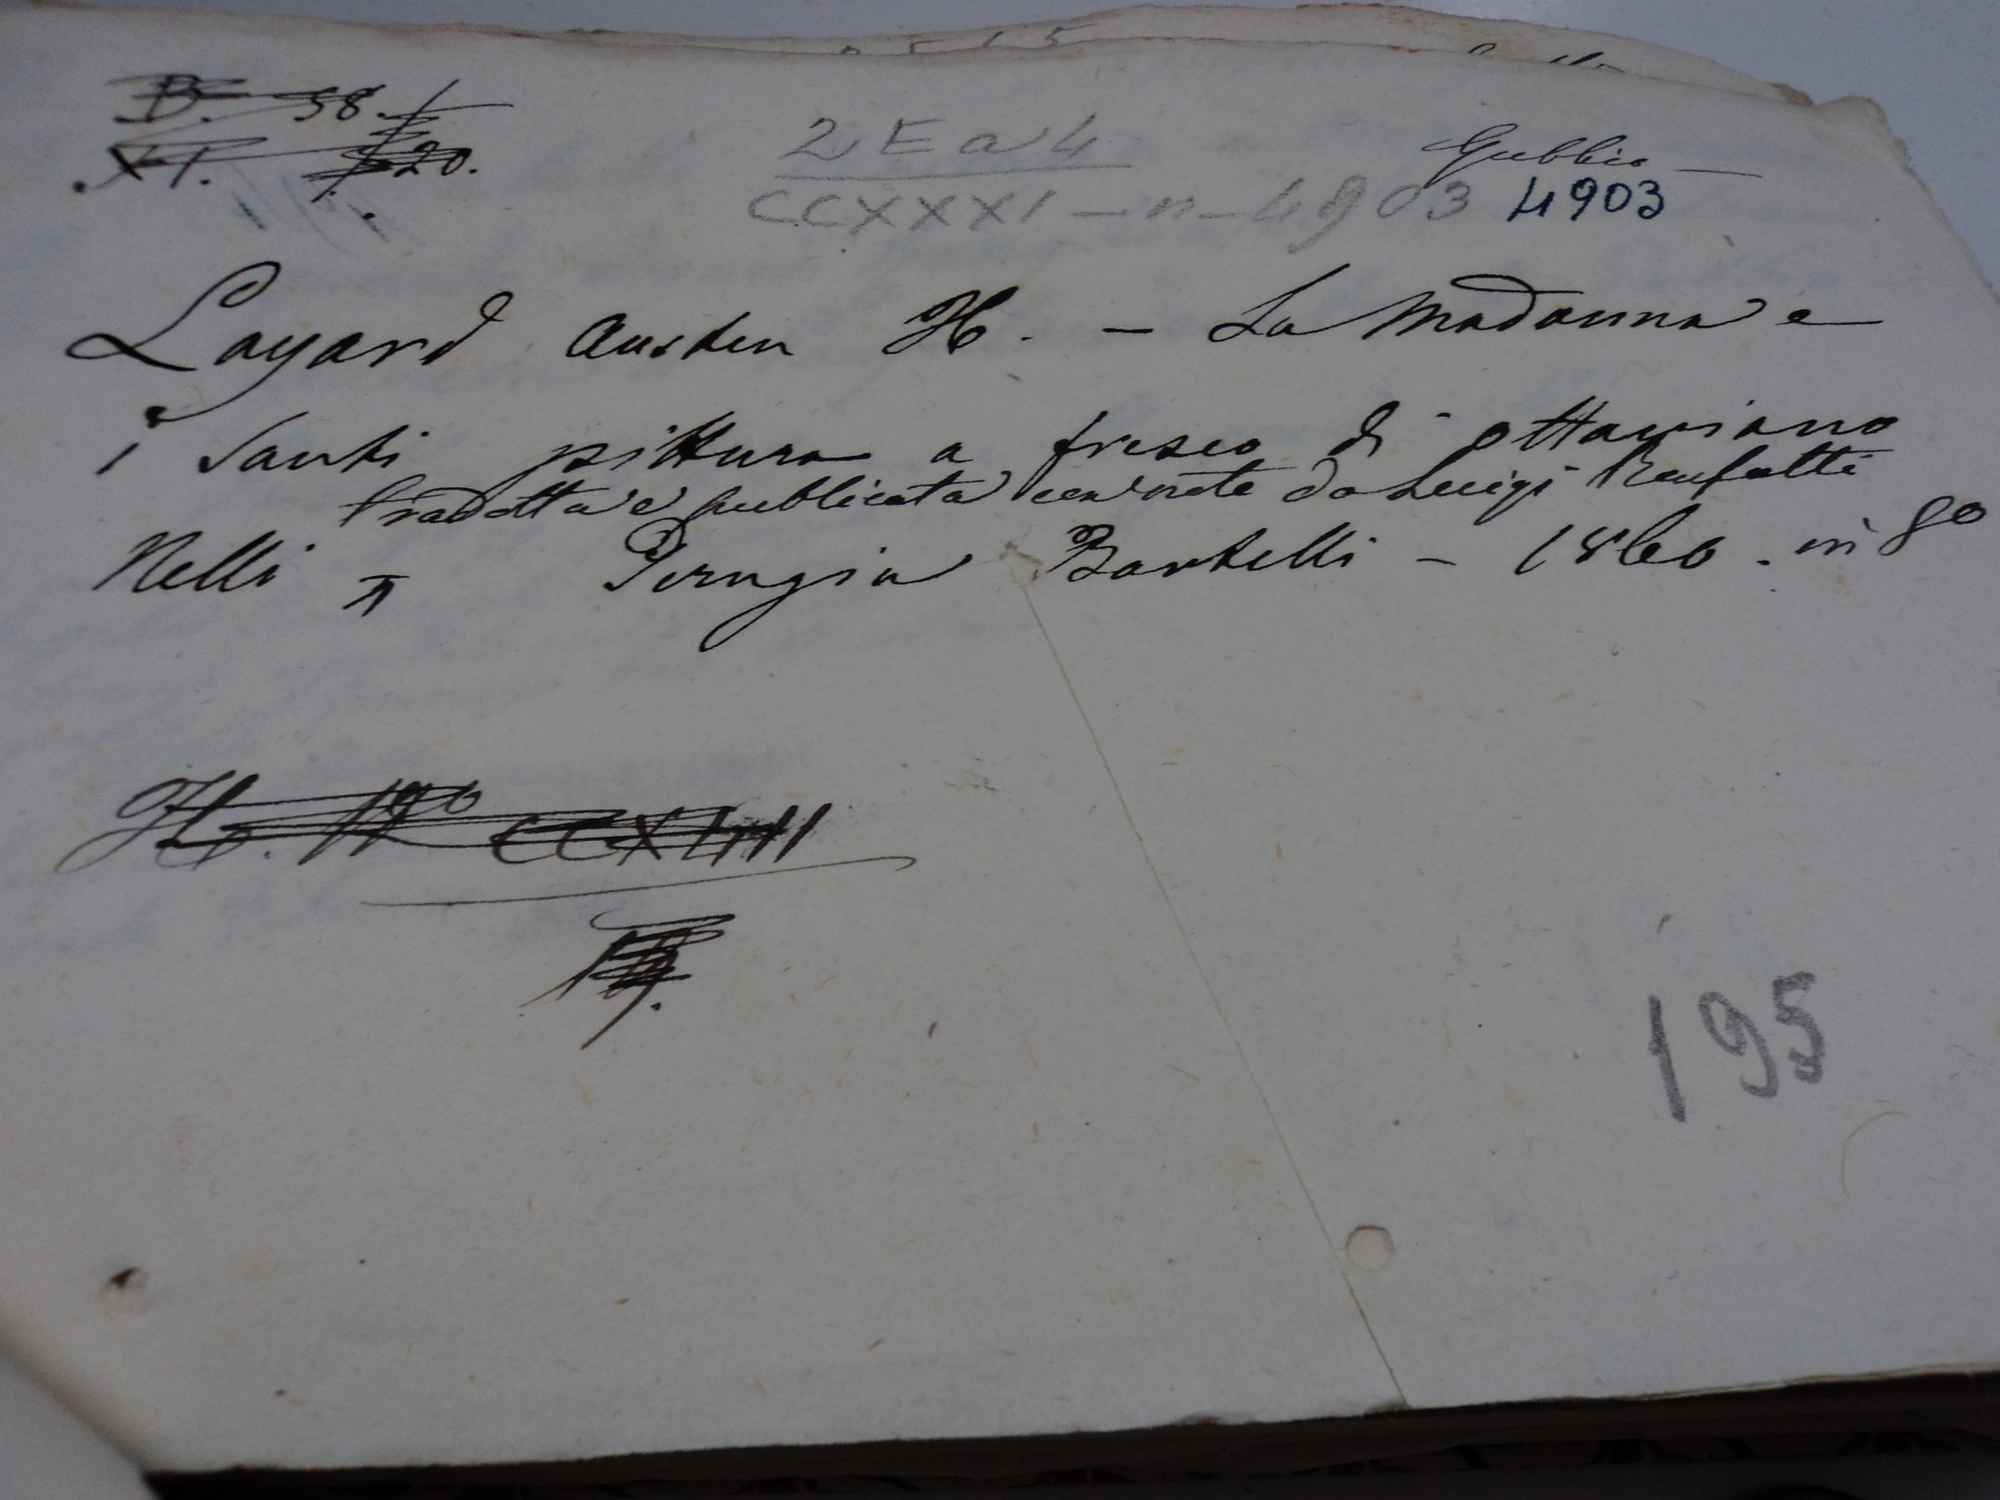 B. 58.
XI. 20.
2 E a 4
CCXXXI - n - 4903
Gubbio
4903
Layard Austen H. - La Madonna e
i Santi pittura a fresco di Ottaviano
tradotta e pubblicata con note da Luigi
Nelli Perugia Bartelli - 1860. in 8º
195